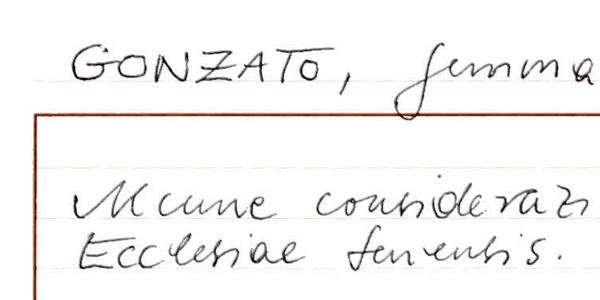 GONZATO, Gemma
Alcune considerazi
Ecclesiae Senensis.